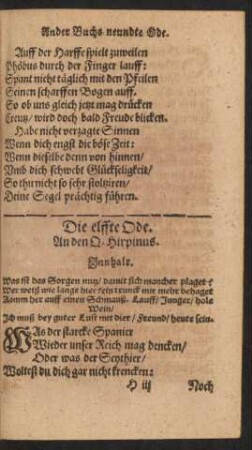 Ander Buchs neundte Ode.
Auff der Harffe spielt zuweilen
Phöbus durch der Finger lauff:
Spant nicht täglich mit den Pfeilen
Seinen scharffen Bogen auff.
So ob uns gleich jetzt mag drücken
Creutz/ wird doch bald Freude blicken.
Habe nicht verzagte Sinnen
Wenn dich engst die böse Zeit:
Wenn dieselbe denn von hinnen/
Vnd dich schwebt Glückseligkeit/
So thu nicht so sehr stoltziren/
Deine Segel prächtig führen.
Die elffte Ode.
An den Q. Hirpinus.
Innhalt.
Was ist das Sorgen nutz/ damit sich mancher plaget?
Wer weiß wie lange hier sein trunck mir mehr behaget
Komm her auff einen Schmauß. Lauff/ Junger/ hole
Wein/
Ich muß bey guter Lust mit dier/ Freund/ heute sein.
WAs der starcke Spanier
Wieder unser Reich mag dencken/
Oder was der Scythier/
Woltest du dich gar nicht krencken:
H iij Noch